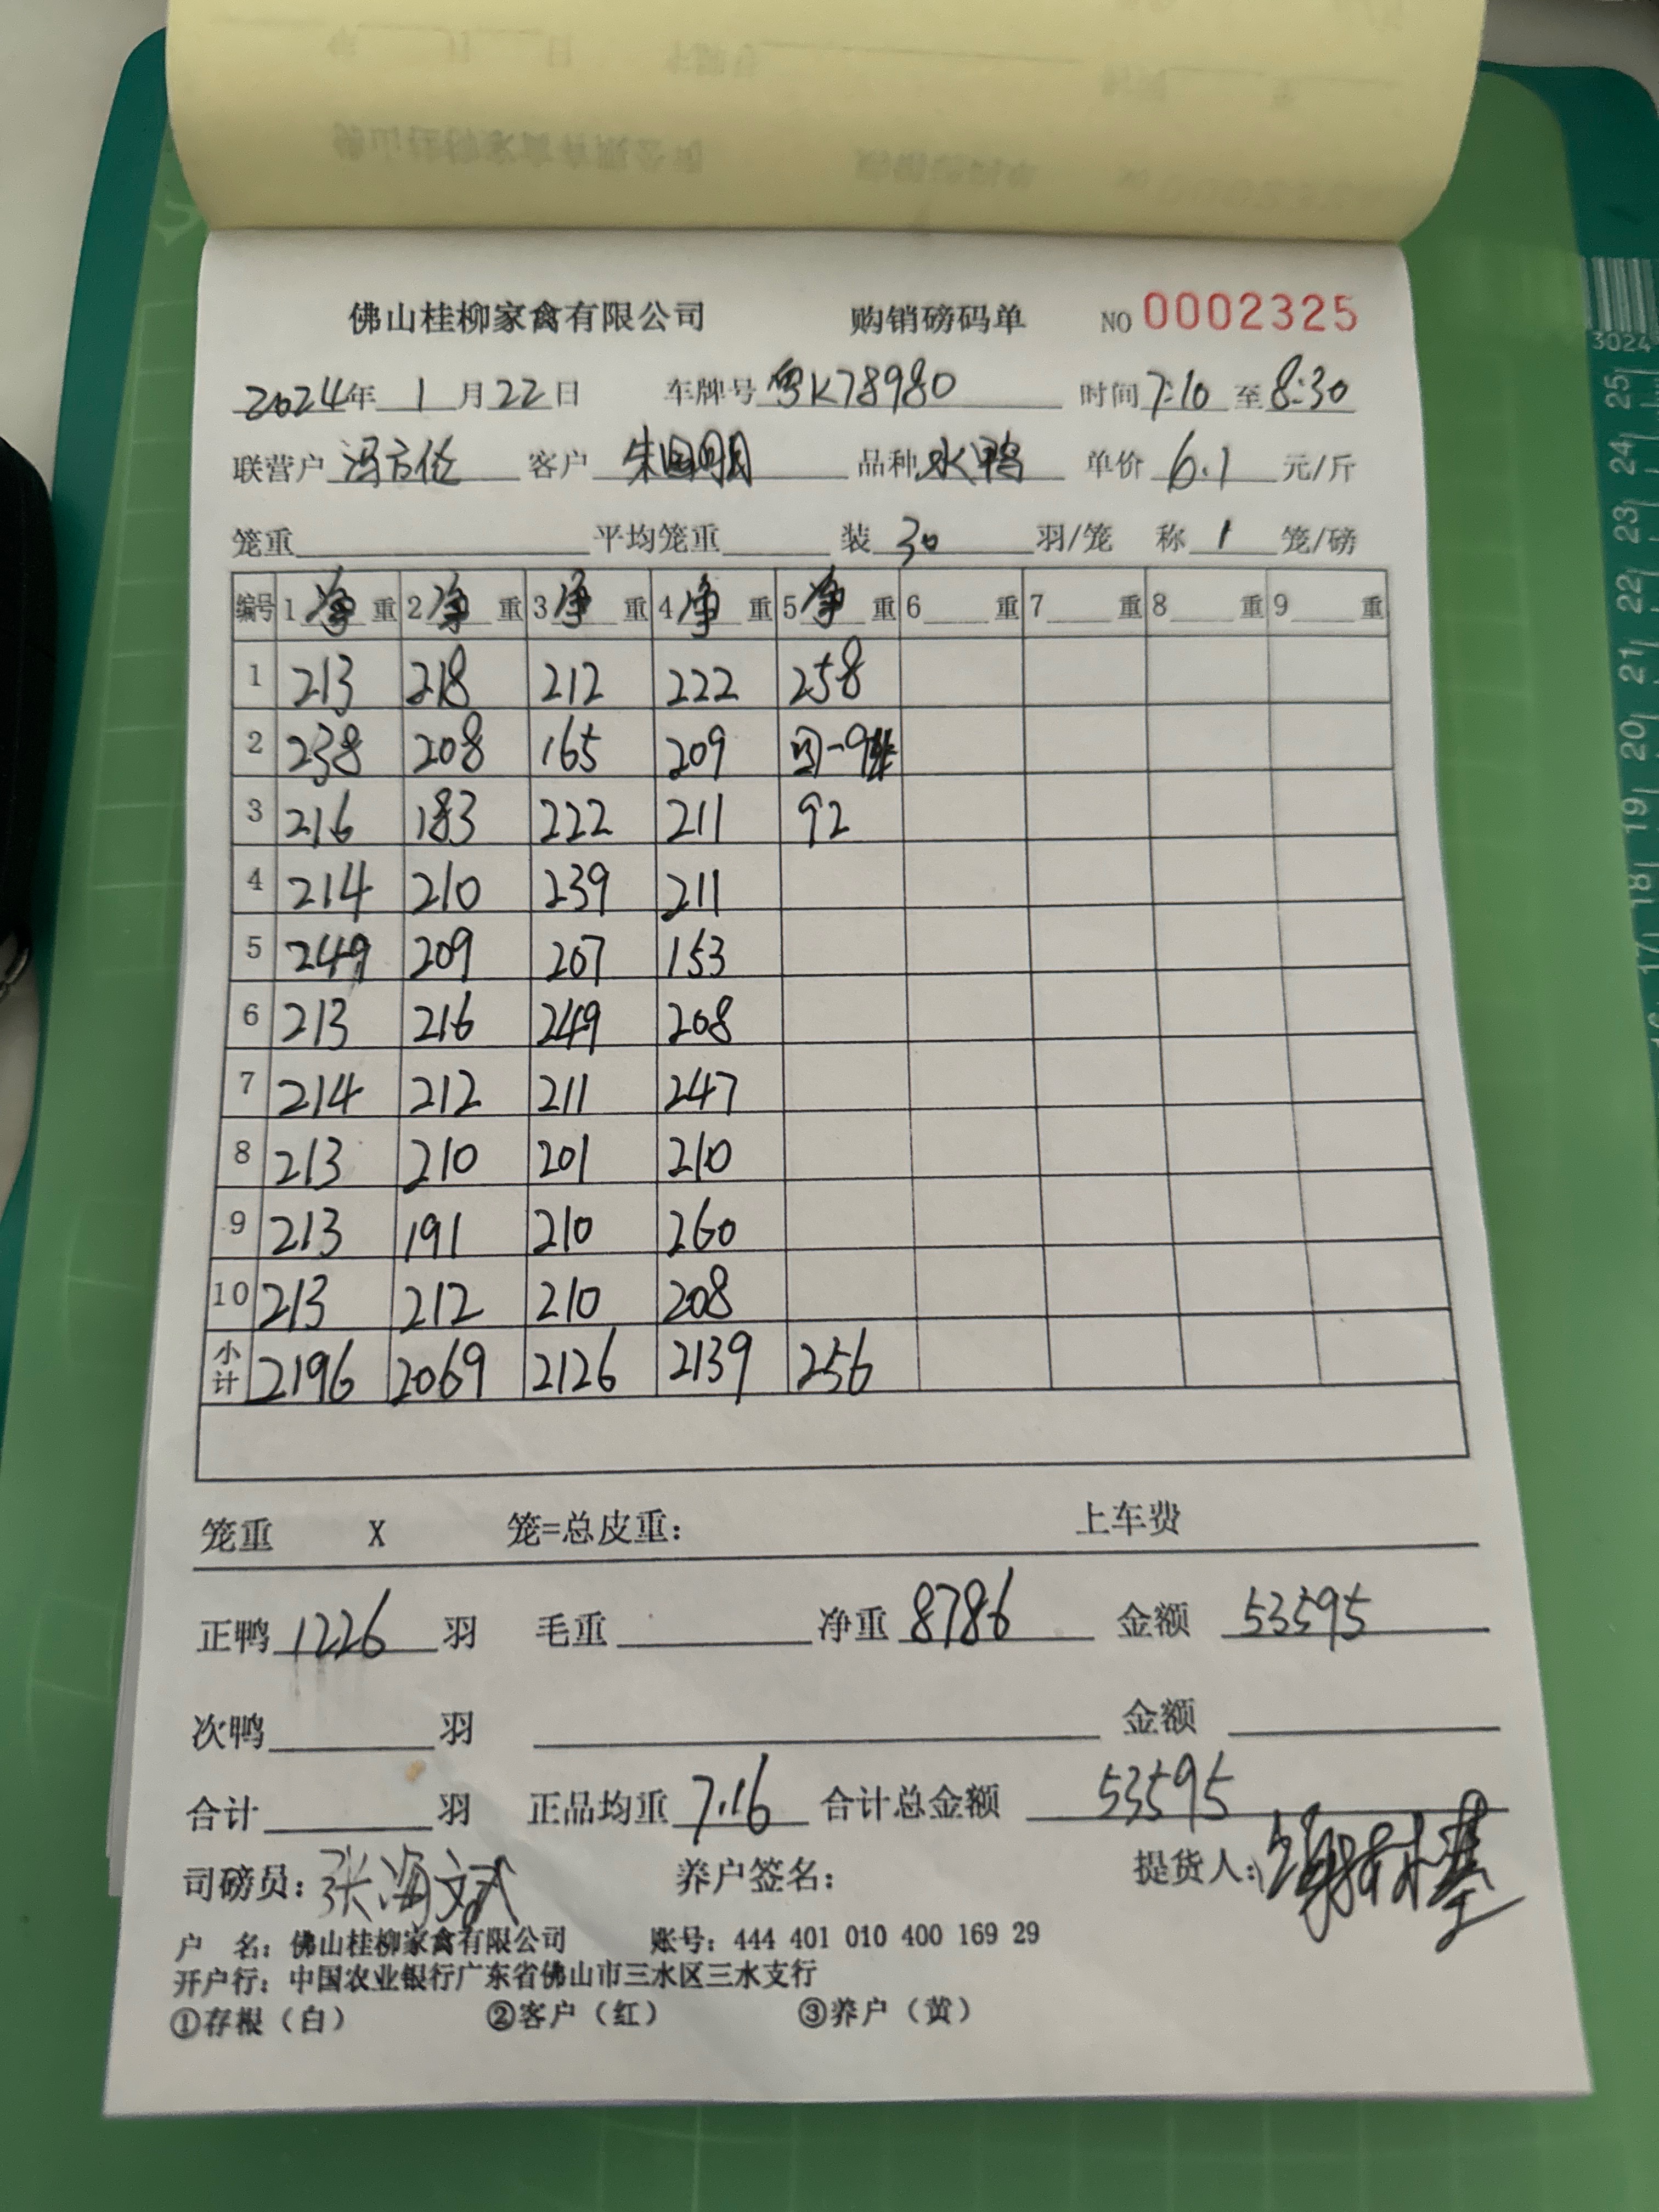 佛山桂柳家禽有限公司 购销磅码单 NO 0002325
2024年 1 月 22 日 车牌号 粤K78980 时间 7:10 至 8:30
联营户 冯方伦 客户 朱国明 品种 水鸭 单价 6.1 元/斤
笼重 平均笼重 装 30 羽/笼 称 1 笼/磅
编号 1 净 重 2 净 重 3 净 重 4 净 重 5 净 重 6 重 7 重 8 重 9 重
1 213 218 212 222 258
2 238 208 165 209 回-9
3 216 183 222 211 92
4 214 210 239 211
5 249 209 207 153
6 213 216 249 208
7 214 212 211 247
8 213 210 201 210
9 213 191 210 260
10 213 212 210 208
小计 2196 2069 2126 2139 256
笼重 X 笼=总皮重: 上车费
正鸭 1226 羽 毛重 净重 8786 金额 53595
次鸭 羽 金额
合计 羽 正品均重 7.16 合计总金额 53595
司磅员: 张海斌 养户签名: 提货人:
户 名: 佛山桂柳家禽有限公司 账号: 444 401 010 400 169 29
开户行: 中国农业银行广东省佛山市三水区三水支行
①存根（白） ②客户（红） ③养户（黄）
3024
25
24
23
22
21
20
19
18
17
16